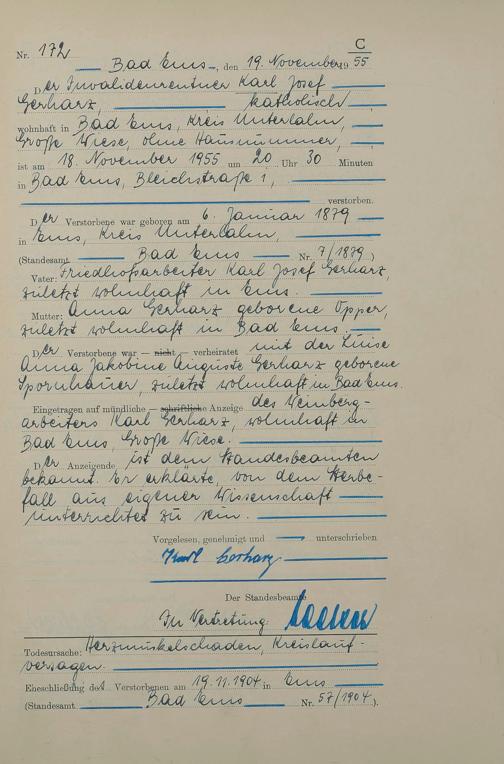 C
Nr. 172
Bad Ems, den 19. November 1955
Der Invalidenrentner Karl Josef
Gerharz, katholisch
wohnhaft in Bad Ems, Kreis Unterlahn,
Große Wiese, ohne Hausnummer,
ist am 18. November 1955 um 20 Uhr 30 Minuten
in Bad Ems, Bleichstraße 1,
verstorben.
Der Verstorbene war geboren am 6. Januar 1879
in Ems, Kreis Unterlahn,
(Standesamt Bad Ems Nr. 7/1879)
Vater: Friedhofsarbeiter Karl Josef Gerharz,
zuletzt wohnhaft in Ems.
Mutter: Anna Gerharz geborene Opper,
zuletzt wohnhaft in Bad Ems.
Der Verstorbene war — nicht — verheiratet mit der Luise
Anna Jakobine Auguste Gerharz geborene
Spornhauer, zuletzt wohnhaft in Bad Ems.
Eingetragen auf mündliche — schriftliche Anzeige des Weinberg-
arbeiters Karl Gerharz, wohnhaft in
Bad Ems, Große Wiese.
Der Anzeigende ist dem Standesbeamten
bekannt. Er erklärte, von dem Sterbe-
fall aus eigener Wissenschaft
unterrichtet zu sein.
Vorgelesen, genehmigt und unterschrieben
Karl Gerharz
Der Standesbeamte
In Vertretung:
Todesursache: Herzmuskelschaden, Kreislauf-
versagen.
Eheschließung des Verstorbenen am 19.11.1904 in Ems
(Standesamt Bad Ems Nr. 57/1904).